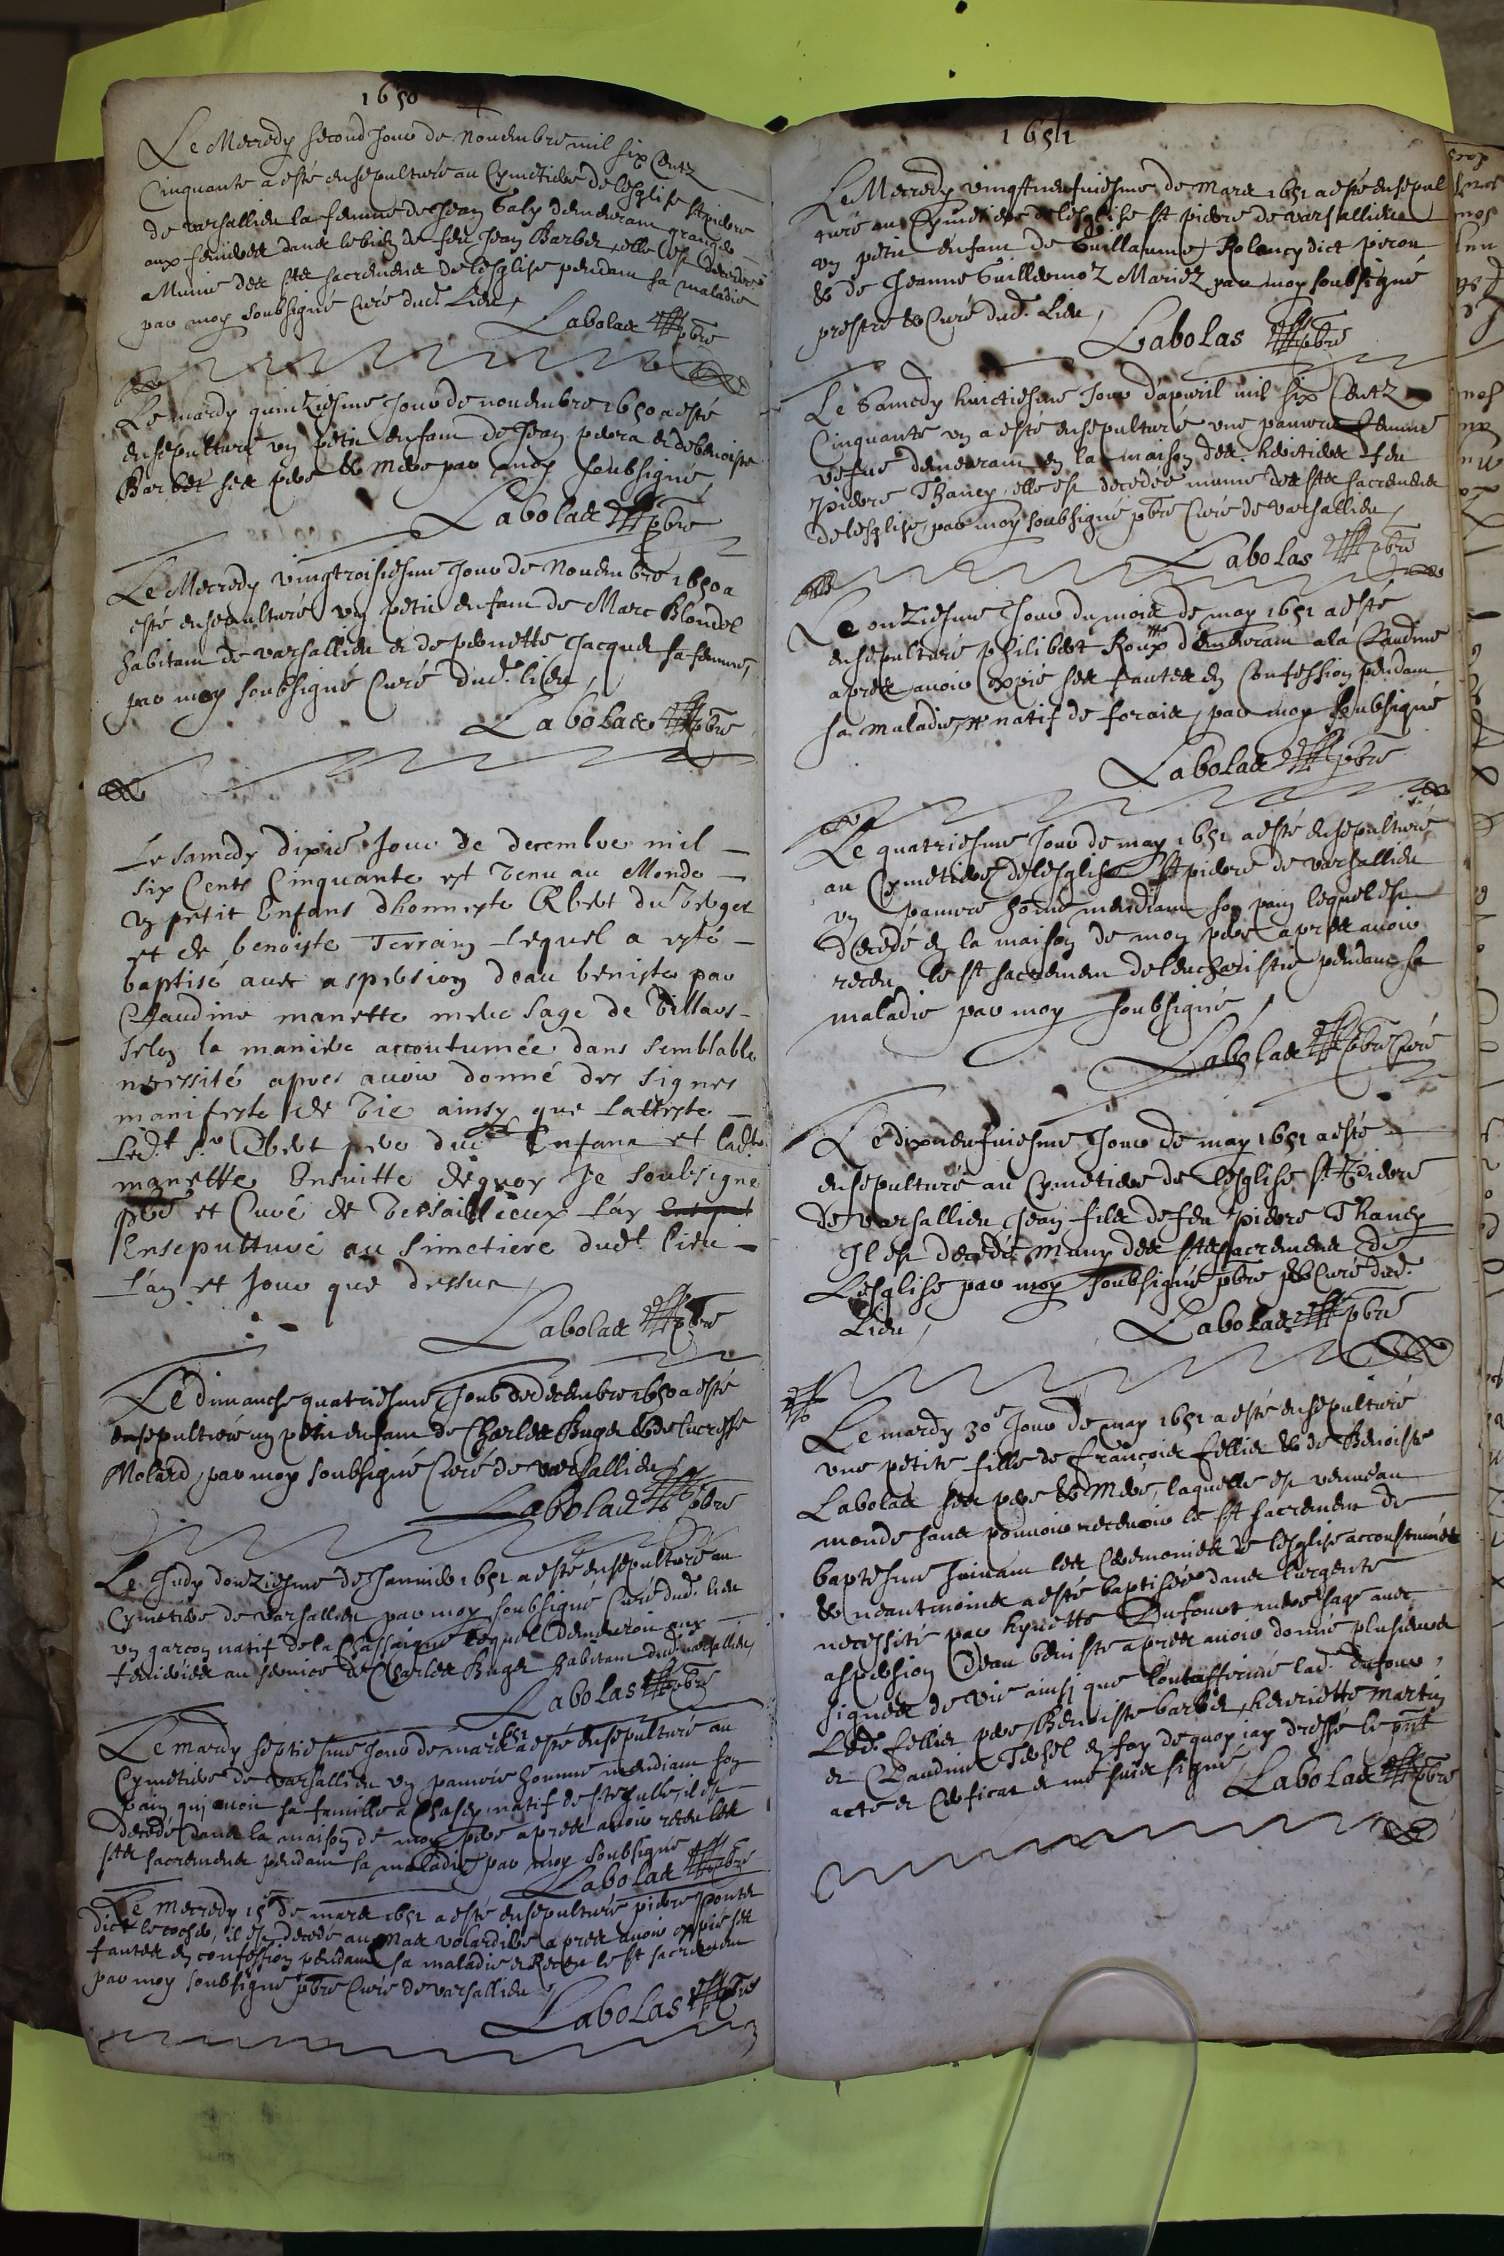 1650
Le Mecredy second Jour de Nouembre mil six Centz
Cinquante a esté ensepulturé au Cymetiere de lesglise st pierre
de varsallieu la femme de Jean Galy demeurant granger
aux feuilles dans le bien de feu Jean Barber, elle est decedée
Munie des sts sacremens de lesglise pendant sa maladie
par moy soubsigné Curé dud. Lieu,
Labolas pbre
Le mardy quinziesme Jour de nouembre 1650 a esté
ensepulturé un petit enfant de Jean et de benoiste
Barber ses pere & Mere par moy soubsigné,
Labolas pbre
Le Mecredy vingtroisiesme Jour de Nouembre 1650 a
esté ensepulturé un petit enfant de Marc Blondel
habitant de varsallieu et de pernette Jacques sa femme,
par moy soubsigné Curé dud. lieu,
Labolas pbre
Le samedy dixie Jour de decembre mil
six Cents Cinquante est venu au Monde
un petit Enfans dhonneste Albert du verger
et de benoiste Terrain lequel a esté
baptisé auec aspersion deau beniste par
Claudine manette mere sage de Villars
selon la maniere accoutumée dans semblable
necessité apres auoir donné des signes
manifeste de vie ainsy que latteste
led.t sr Albert pere dud. Enfans et lad.te
manette Ensuitte dequoy Je soubsigne
pbre et Curé de Versailleux lay
Ensepulturé au simetiere dud.t lieu
lan et Jour que dessus,
Labolas pbre
Le dimanche quatriesme Jour de decembre 1650 a esté
ensepulturé un petit enfant de Charles Buger & de lucresse
Molard, par moy soubsigné Curé de varsallieu,
Labolas pbre
Le Judy douziesme de Januier 1651 a esté ensepulturé au
Cymetiere de varsallieu par moy soubsigné Curé dud. lieu
un garcon natif de la Chassaigne lequel demeuroit aux
au seruice de Charles Buger habitant dud. varsallieu,
Labolas pbre
Le mardy septiesme Jour de mars 1651 a esté ensepulturé au
Cymetiere de varsallieu un pauure homme mendiant son
pain qui auoit sa famille a natif de ste Julle, il est
decedé dans la maison de mon pere apres auoir receu les
sts sacremens pendant sa maladie par moy soubsigné
Labolas pbre
Le Mecredy 15e de mars 1651 a esté ensepulturé pierre
dict le cocher, il est decedé au Mas volardiere apres auoir expié ses
fautes en confession pendant sa maladie et Receu le st sacrement
par moy soubsigné pbre Curé de varsallieu
Labolas pbre
1651
Le Mecredy vingtneufuiesme de Mars 1651 a esté ensepul
turé au Cymetiere de lesglise st pierre de varsallieu
un petit enfant de Guillaume Rolancy dict piron
& de Jeanne Guillermoz Mariez par moy soubsigné
prestre & Curé dud. Lieu,
Labolas pbre
Le Samedy huictiesme Jour dapuril mil six Centz
Cinquante un a esté ensepulturé une pauure femme
vefue demeurant en la maison des heritiers feu
pierre Thaney, elle est decedée munie des sts sacremens
de lesglise, par moy soubsigné pbre Curé de varsallieu,
Labolas pbre
Le onziesme Jour du mois de may 1651 a esté
ensepulturé philibert Roux demeurant a la
apres auoir expié ses fautes en Confession pendant
sa maladie, natif de forais, par moy soubsigné
Labolas pbre
Le quatriesme Jour de may 1651 a esté ensepulturé
au Cymetiere de lesglise st pierre de varsallieu
un pauure home mendiant son pain lequel est
decedé en la maison de mon pere apres auoir
receu le st sacrement de leucharistie pendant sa
maladie par moy soubsigné,
Labolas pbre Curé
Le dixneufuiesme Jour de may 1651 a esté
ensepulturé au Cymetiere de lesglise st Pierre
de varsallieu Jean fils de feu pierre Thaney
Il est decedé Muny des sts sacremens de
Lesglise par moy soubsigné pbre & Curé dud.
Lieu,
Labolas pbre
Le mardy 30e Jour de may 1651 a esté ensepulturé
une petite fille de francois fellier & de Benoiste
Labolas ses pere & Mere, laquelle est venue au
monde sans pouuoir receuoir le st sacrement de
baptesme suiuant les Ceremonies de lesglise accoustumées
& neantmoins a esté baptisée dans lurgente
necessité par hynette Dufour mere sage auec
aspersion deau beniste apres auoir donné plusieurs
signes de vie ainsi que lont affermé lad. dufour,
Led. fellier pere, Benoiste barber, henriette Martin
et Claudine Tissel en foy de quoy iay dressé le pnt
acte et Certificat et me suis signé
Labolas pbre